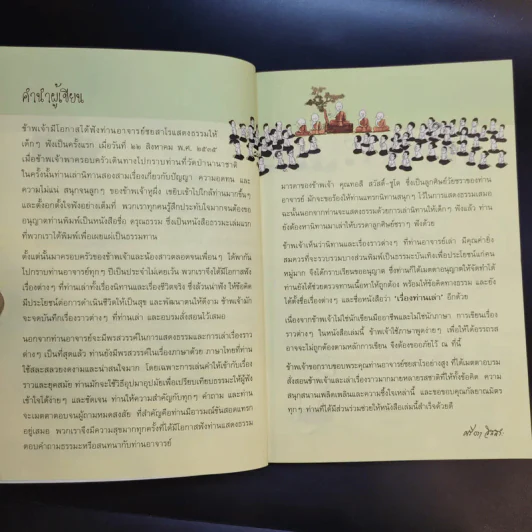 คำนำผู้เขียน
ข้าพเจ้ามีโอกาสได้ฟังท่านอาจารย์ชยสาโรแสดงธรรมให้
เด็กๆ ฟังเป็นครั้งแรก เมื่อวันที่ ๒๒ สิงหาคม พ.ศ. ๒๕๓๕
เมื่อข้าพเจ้าพาครอบครัวเดินทางไปกราบท่านที่วัดป่านานาชาติ
ในครั้งนั้นท่านเล่านิทานสองสามเรื่องเกี่ยวกับปัญญา ความอดทน และ
ความไม่แน่ สนุกจนลูกๆ ของข้าพเจ้าหูผึ่ง เขยิบเข้าไปใกล้ท่านมากขึ้นๆ
และตั้งอกตั้งใจฟังอย่างเต็มที่ พวกเราทุกคนรู้สึกประทับใจมากจนต้องขอ
อนุญาตท่านพิมพ์เป็นหนังสือชื่อ ดรุณธรรม ซึ่งเป็นหนังสือธรรมะเล่มแรก
ที่พวกเราได้พิมพ์เพื่อเผยแผ่เป็นธรรมทาน
ตั้งแต่นั้นมาครอบครัวของข้าพเจ้าและน้องสาวตลอดจนเพื่อนๆ ได้พากัน
ไปกราบท่านอาจารย์ทุกๆ ปีเป็นประจำไม่เคยเว้น พวกเราจึงได้มีโอกาสฟัง
เรื่องต่างๆ ที่ท่านเล่าทั้งเรื่องนิทานและเรื่องชีวิตจริง ซึ่งล้วนน่าฟัง ให้ข้อคิด
มีประโยชน์ต่อการดำเนินชีวิตให้เป็นสุข และพัฒนาตนให้ดีงาม ข้าพเจ้ามัก
จะจดบันทึกเรื่องราวต่างๆ ที่ท่านเล่า และอบรมสั่งสอนไว้เสมอ
นอกจากท่านอาจารย์จะมีพรสวรรค์ในการแสดงธรรมและการเล่าเรื่องราว
ต่างๆ เป็นที่สุดแล้ว ท่านยังมีพรสวรรค์ในเรื่องภาษาด้วย ภาษาไทยที่ท่าน
ใช้สละสลวยงดงามและน่าสนใจมาก โดยเฉพาะการเล่นคำให้เข้ากับเรื่อง
ราวและยุคสมัย ท่านมักจะใช้วิธีอุปมาอุปมัยเพื่อเปรียบเทียบธรรมะให้ผู้ฟัง
เข้าใจได้ง่ายๆ และชัดเจน ท่านให้ความสำคัญกับทุกๆ คำถาม และท่าน
จะเมตตาตอบจนผู้ถามหมดสงสัย ที่สำคัญคือท่านมีอารมณ์ขันสอดแทรก
อยู่เสมอ พวกเราจึงมีความสุขมากทุกครั้งที่ได้มีโอกาสฟังท่านแสดงธรรม
ตอบคำถามธรรมะหรือสนทนากับท่านอาจารย์
มารดาของข้าพเจ้า คุณทอสี สวัสดิ์-ชูโต ซึ่งเป็นลูกศิษย์วัยชราของท่าน
อาจารย์ มักจะขอร้องให้ท่านแทรกนิทานสนุกๆ ไว้ในการแสดงธรรมเสมอ
ฉะนั้นนอกจากท่านจะแสดงธรรมด้วยการเล่านิทานให้เด็กๆ ฟังแล้ว ท่าน
ยังต้องหานิทานมาเล่าให้บรรดาลูกศิษย์ชราๆ ฟังด้วย
ข้าพเจ้าเห็นว่านิทานและเรื่องราวต่างๆ ที่ท่านอาจารย์เล่า มีคุณค่ายิ่ง
สมควรที่จะรวบรวมบางส่วนพิมพ์เป็นธรรมะบันเทิงเพื่อประโยชน์แก่คน
หมู่มาก จึงได้กราบเรียนขออนุญาต ซึ่งท่านก็ได้เมตตาอนุญาตให้จัดทำได้
ท่านยังได้ช่วยตรวจทานเนื้อหาให้ถูกต้อง พร้อมให้ข้อคิดทางธรรมะ และยัง
ได้ตั้งชื่อเรื่องต่างๆ และชื่อหนังสือว่า "เรื่องท่านเล่า" อีกด้วย
เนื่องจากข้าพเจ้าไม่ใช่นักเขียนมืออาชีพและไม่ใช่นักภาษา การเขียนเรื่อง
ราวต่างๆ ในหนังสือเล่มนี้ ข้าพเจ้าใช้ภาษาพูดง่ายๆ เพื่อให้ได้อรรถรส
อาจจะไม่ถูกต้องตามหลักการเขียน จึงต้องขออภัยไว้ ณ ที่นี้
ข้าพเจ้าขอกราบขอบพระคุณท่านอาจารย์ชยสาโรอย่างสูง ที่ได้เมตตาอบรม
สั่งสอนข้าพเจ้าและเล่าเรื่องราวมากมายหลายรสชาติที่ให้ทั้งข้อคิด ความ
สนุกสนานเพลิดเพลินและความซึ้งใจเหล่านี้ และขอขอบคุณกัลยาณมิตร
ทุกๆ ท่านที่ได้มีส่วนร่วมช่วยให้หนังสือเล่มนี้สำเร็จด้วยดี